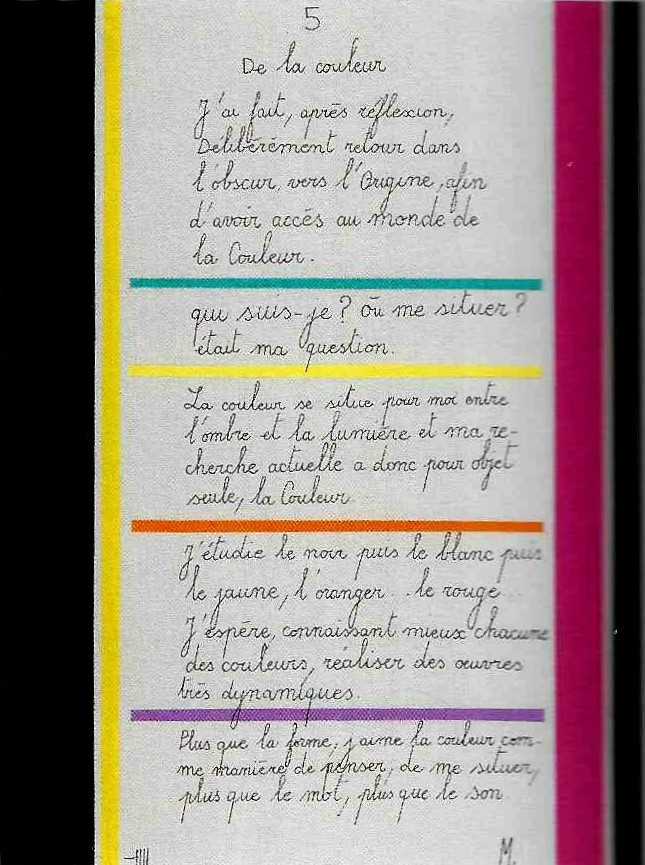 5
De la couleur
J'ai fait, après réflexion,
Délibérément retour dans
l'obscur, vers l'Origine, afin
d'avoir accés au monde de
la Couleur.
qui suis-je? où me situer?
était ma question.
La couleur se situe pour moi entre
l'ombre et la lumière et ma re-
cherche actuelle a donc pour objet
seule, la Couleur.
J'étudie le noir puis le blanc puis
le jaune, l'oranger... le rouge...
J'espère, connaissant mieux chacune
des couleurs, réaliser des œuvres
très dynamiques.
Plus que la forme, j'aime la couleur com-
me manière de penser, de me situer,
plus que le mot, plus que le son.
M.